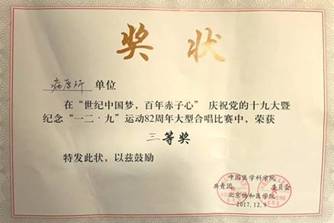 奖状
病原所 单位
在“世纪中国梦，百年赤子心”庆祝党的十九大暨
纪念“一二·九”运动82周年大型合唱比赛中，荣获
三等奖
特发此状，以兹鼓励
中国医学科学院
共青团 委员会
北京协和医学院
2017.12.9